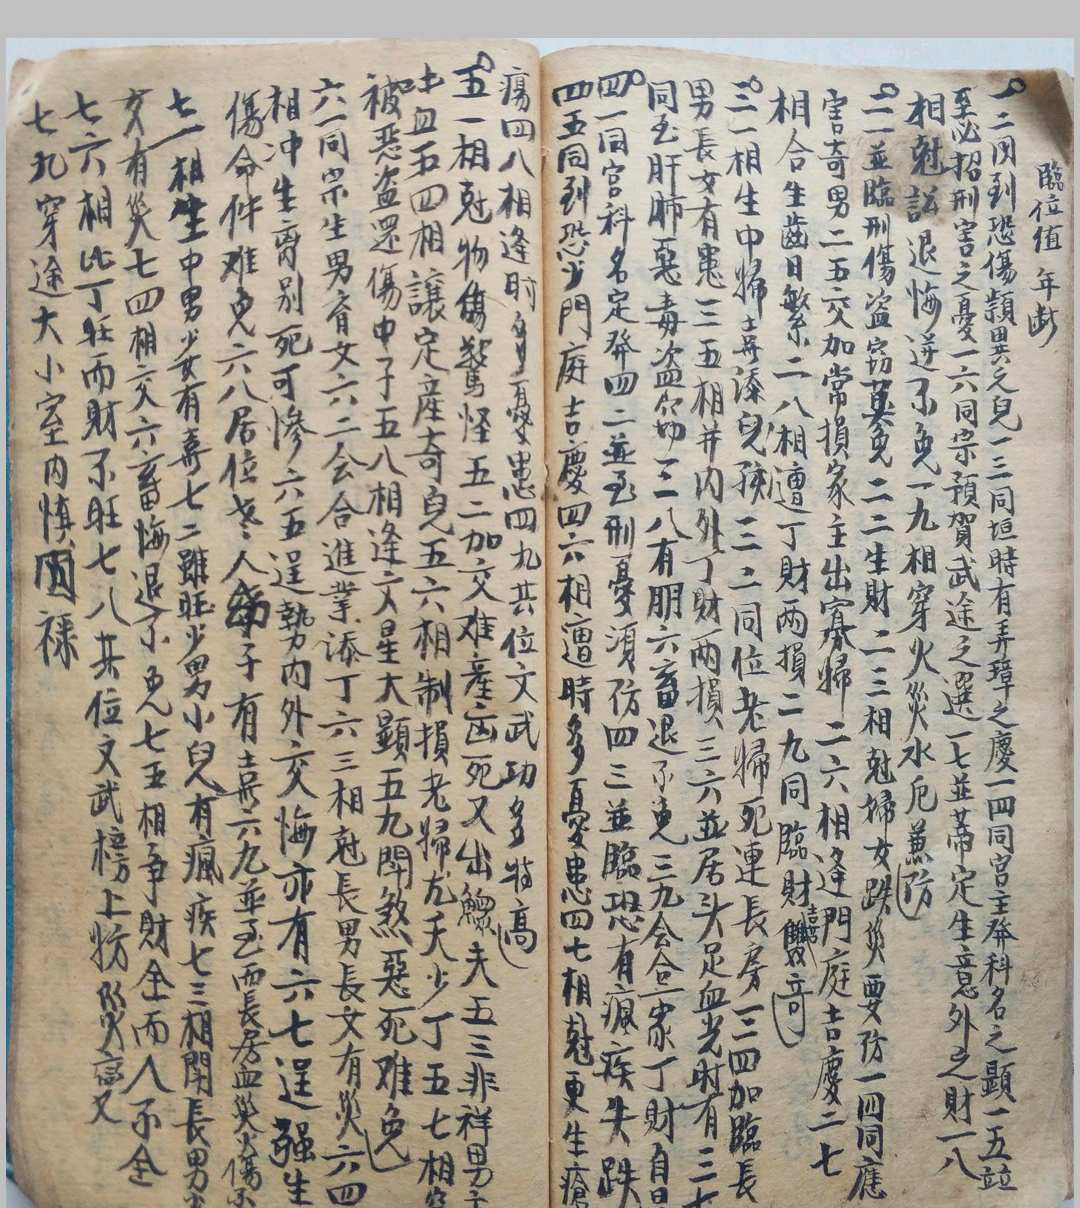 臨位值年斷
一二同到恐傷顛異之兒一三同垣時有弄璋之慶一四同宮主發科名之顯一五並
至必招刑害之憂一六同宗預賀武途之選一七並蒂定生意外之財一八
相尅訟退悔迸不免一九相穿火災水厄兼防
二一並臨刑傷盜窃莫免二二生財二三相尅婦女跌災要防二四同應
害奇男二五交加常損家主出寡婦二六相逢門庭吉慶二七
相合生齒日繁二八相遭丁財兩損二九同臨財囍雙奇
三一相生中婦喜添兒孩三二同位老婦死連長房三四加臨長
男長女有患三五相并內外丁財兩損三六並居头足血光时有三七
同至肝肺惡毒盗窃三八有朋六畜退不免三九会合一家丁財自
四一同宮科名定發四二並至刑憂須防四三並臨恐有瘋疾失跌
四五同到恐少門庭吉慶四六相遭時多憂患四七相尅更生瘡
瘍四八相逢时多憂患四九共位文武功多特高
五一相尅物傷驚怪五二加交难產凶死又出鰥夫五三非祥男子
吐血五四相讓定產奇兒五六相制損老婦尢夭少丁五七相
被惡盗還傷中子五八相逢文星大顯五九鬥煞惡死难免
六一同宗生男育女六二会合進業添丁六三相尅長男長女有災六四
相冲生离别死可慘六五逞勢內外交悔亦有六七逞強生
傷命件难免六八居位老人帶子有喜六九並至而長房血災火傷不
七一相生中男少女有喜七二雖旺少男小兒有瘋疾七三相閗長男
女有災七四相交六畜悔退不免七五相爭財全而人不全
七六相比丁旺而財不旺七八共位文武榜上妨災
七九穿途大小室內慎囬祿